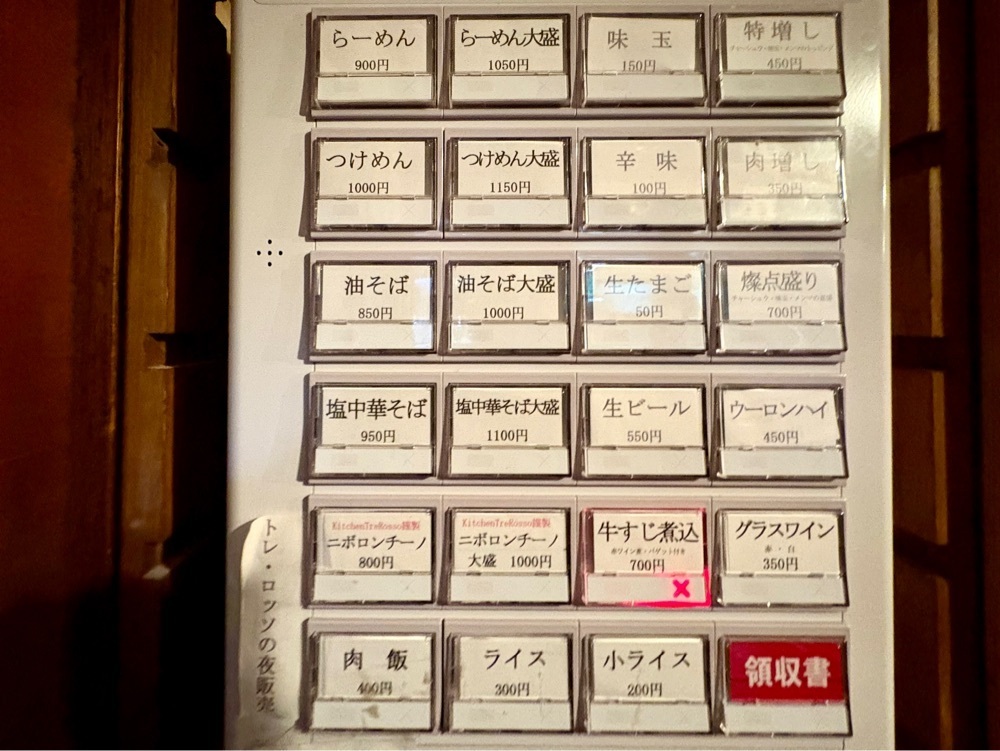 らーめん
900円
らーめん大盛
1050円
味 玉
150円
特増し
450円
つけめん
1000円
つけめん大盛
1150円
辛 味
100円
肉増し
350円
油そば
850円
油そば大盛
1000円
生たまご
50円
燦点盛り
700円
塩中華そば
950円
塩中華そば大盛
1100円
生ビール
550円
ウーロンハイ
450円
KitchenTreRosso謹製
ニボロンチーノ
800円
KitchenTreRosso謹製
ニボロンチーノ
大盛 1000円
牛すじ煮込
赤ワイン煮・バゲット付き
700円
×
グラスワイン
赤・白
350円
トレ・ロッソの夜販売
肉 飯
400円
ライス
300円
小ライス
200円
領収書